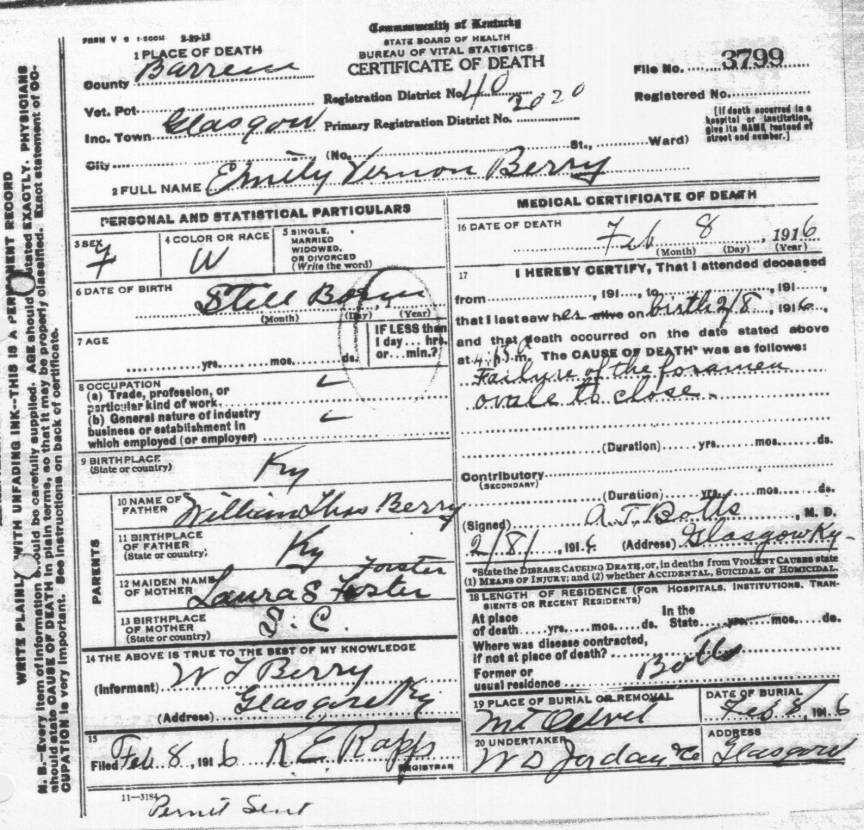 FORM V S 1-500M 2-29-12
Commonwealth of Kentucky
STATE BOARD OF HEALTH
BUREAU OF VITAL STATISTICS
CERTIFICATE OF DEATH
1 PLACE OF DEATH
County Barren
Vot. Pct.
Inc. Town Glasgow
City (No. St., Ward)
Registration District No. 40
Primary Registration District No. 2020
File No. 3799
Registered No.
[If death occurred in a hospital or institution, give its NAME instead of street and number.]
2 FULL NAME Emily Vernon Berry
PERSONAL AND STATISTICAL PARTICULARS
3 SEX F
4 COLOR OR RACE W
5 SINGLE, MARRIED WIDOWED, OR DIVORCED (Write the word)
6 DATE OF BIRTH Still Born
(Month) (Day) (Year)
7 AGE
yrs. mos. ds.
IF LESS than 1 day... hrs. or... min.?
8 OCCUPATION
(a) Trade, profession, or particular kind of work
(b) General nature of industry business or establishment in which employed (or employer)
9 BIRTHPLACE (State or country) Ky
PARENTS
10 NAME OF FATHER William Thos Berry
11 BIRTHPLACE OF FATHER (State or country) Ky
12 MAIDEN NAME OF MOTHER Laura S Foster
Forster
13 BIRTHPLACE OF MOTHER (State or country) S.C.
14 THE ABOVE IS TRUE TO THE BEST OF MY KNOWLEDGE
(Informant) W T Berry
(Address) Glasgow Ky
15
Filed Feb 8, 1916 K E Rapp
REGISTRAR
11-3184
Permit Sent
MEDICAL CERTIFICATE OF DEATH
16 DATE OF DEATH Feb 8, 1916
(Month) (Day) (Year)
17 I HEREBY CERTIFY, That I attended deceased
from , 191 , to , 191 ,
that I last saw her alive on birth 2/8, 1916,
and that death occurred on the date stated above
at m. The CAUSE OF DEATH* was as follows:
Failure of the foramen
ovale to close.
(Duration) yrs. mos. ds.
Contributory
(SECONDARY)
(Duration) yrs. mos. ds.
(Signed) A.T. Botts, M. D.
2/8/, 1916 (Address) Glasgow Ky.
*State the DISEASE CAUSING DEATH, or, in deaths from VIOLENT CAUSES state
(1) MEANS OF INJURY; and (2) whether ACCIDENTAL, SUICIDAL or HOMICIDAL.
18 LENGTH OF RESIDENCE (FOR HOSPITALS, INSTITUTIONS, TRANSIENTS OR RECENT RESIDENTS)
At place of death yrs. mos. ds. In the State yrs. mos. ds.
Where was disease contracted, if not at place of death?
Former or usual residence Botts
19 PLACE OF BURIAL OR REMOVAL
DATE OF BURIAL
Feb 8, 1916
20 UNDERTAKER
W D Jordan & Co
ADDRESS
Glasgow
WRITE PLAINLY WITH UNFADING INK--THIS IS A PERMANENT RECORD
N. B.--Every item of information should be carefully supplied. AGE should be stated EXACTLY. PHYSICIANS
should state CAUSE OF DEATH in plain terms, so that it may be properly classified. Exact statement of OC-
CUPATION is very important. See instructions on back of certificate.